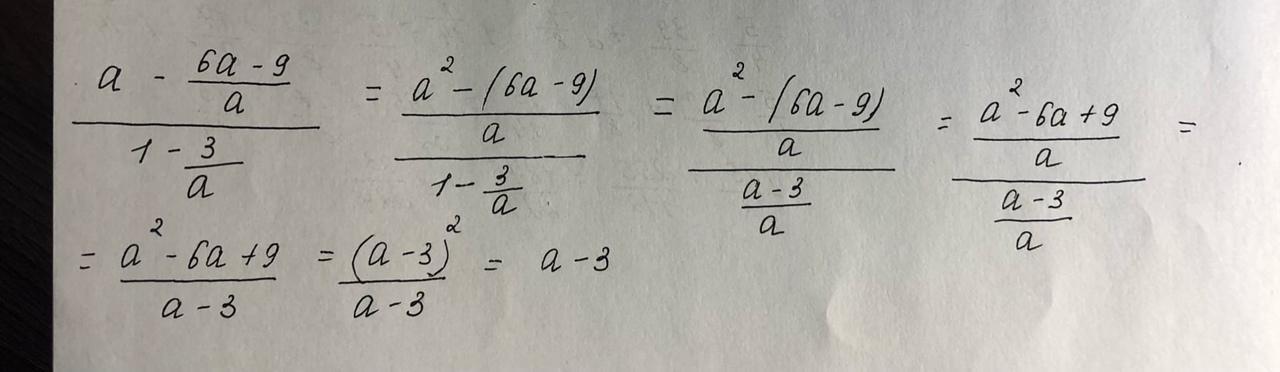 \frac{a - \frac{6a-9}{a}}{1 - \frac{3}{a}} = \frac{\frac{a^2-(6a-9)}{a}}{1-\frac{3}{a}} = \frac{\frac{a^2-(6a-9)}{a}}{\frac{a-3}{a}} = \frac{\frac{a^2-6a+9}{a}}{\frac{a-3}{a}} =
= \frac{a^2-6a+9}{a-3} = \frac{(a-3)^2}{a-3} = a-3